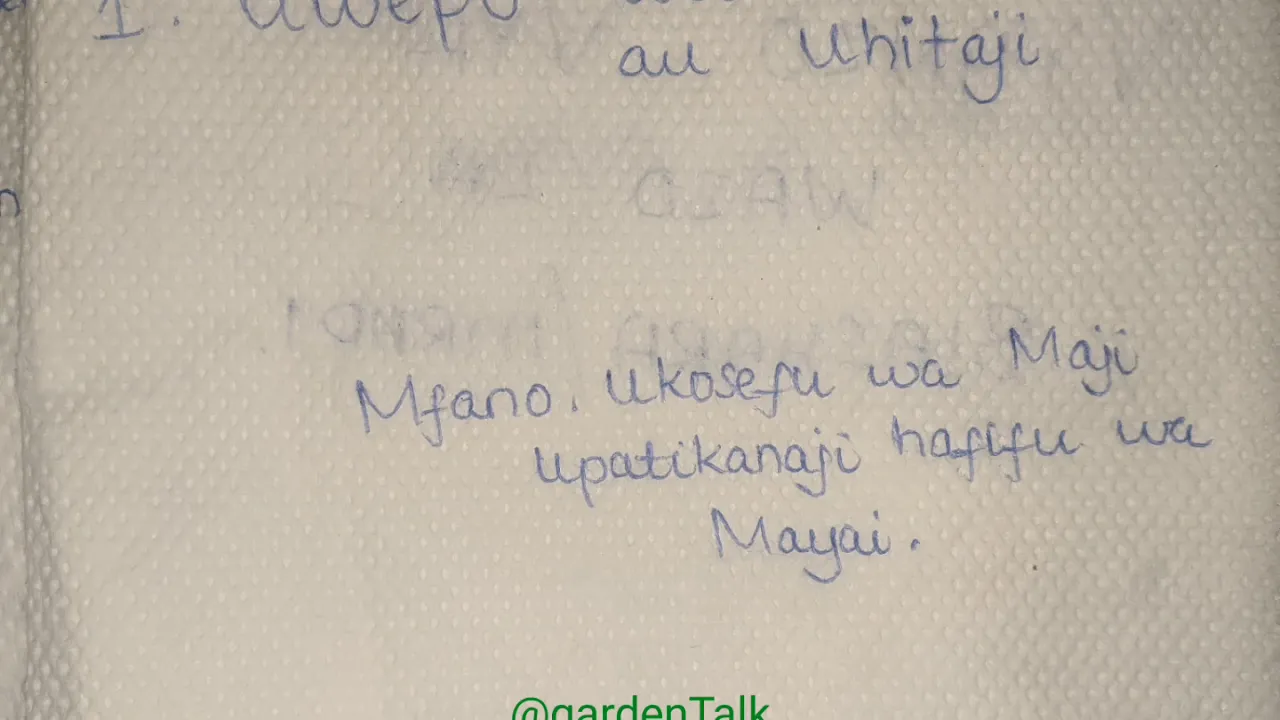 1. Uwepo
au Uhitaji
Mfano. Ukosefu wa Maji
upatikanaji hafifu wa
Mayai.
@gardenTalk